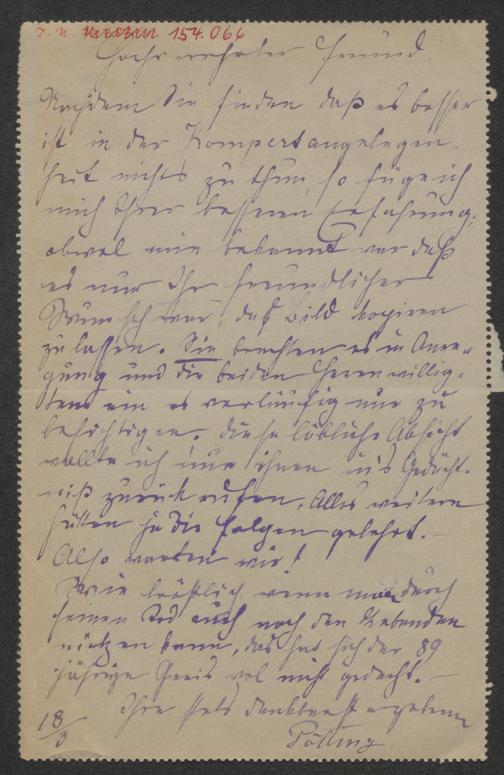 J. N. 154.066
Hochverehrter Freund
Nachdem Sie finden daß es besser
ist in der Kompertangelegen-
heit nichts zu thun, so füge ich
mich Ihrer besseren Erfahrung,
obwol mir bekannt war daß
es nur Ihr freundlicher
Wunsch war, das Bild kopiren
zu lassen. Sie brachten es in Anre-
gung und die beiden Herren willig-
ten ein es vorläufig nur zu
besichtigen. Diese löbliche Absicht
wollte ich nur ihnen in's Gedächt-
niß zurück rufen. Alles weitere
hätten ja die Folgen gelehrt. –
Also warten wir!
Wie tröstlich wenn man durch
seinen Tod auch noch den Lebenden
nützen kann, das hat sich der 89
jährige Greis wol nicht gedacht. –
Ihre stets dankbarst ergebene
18/3